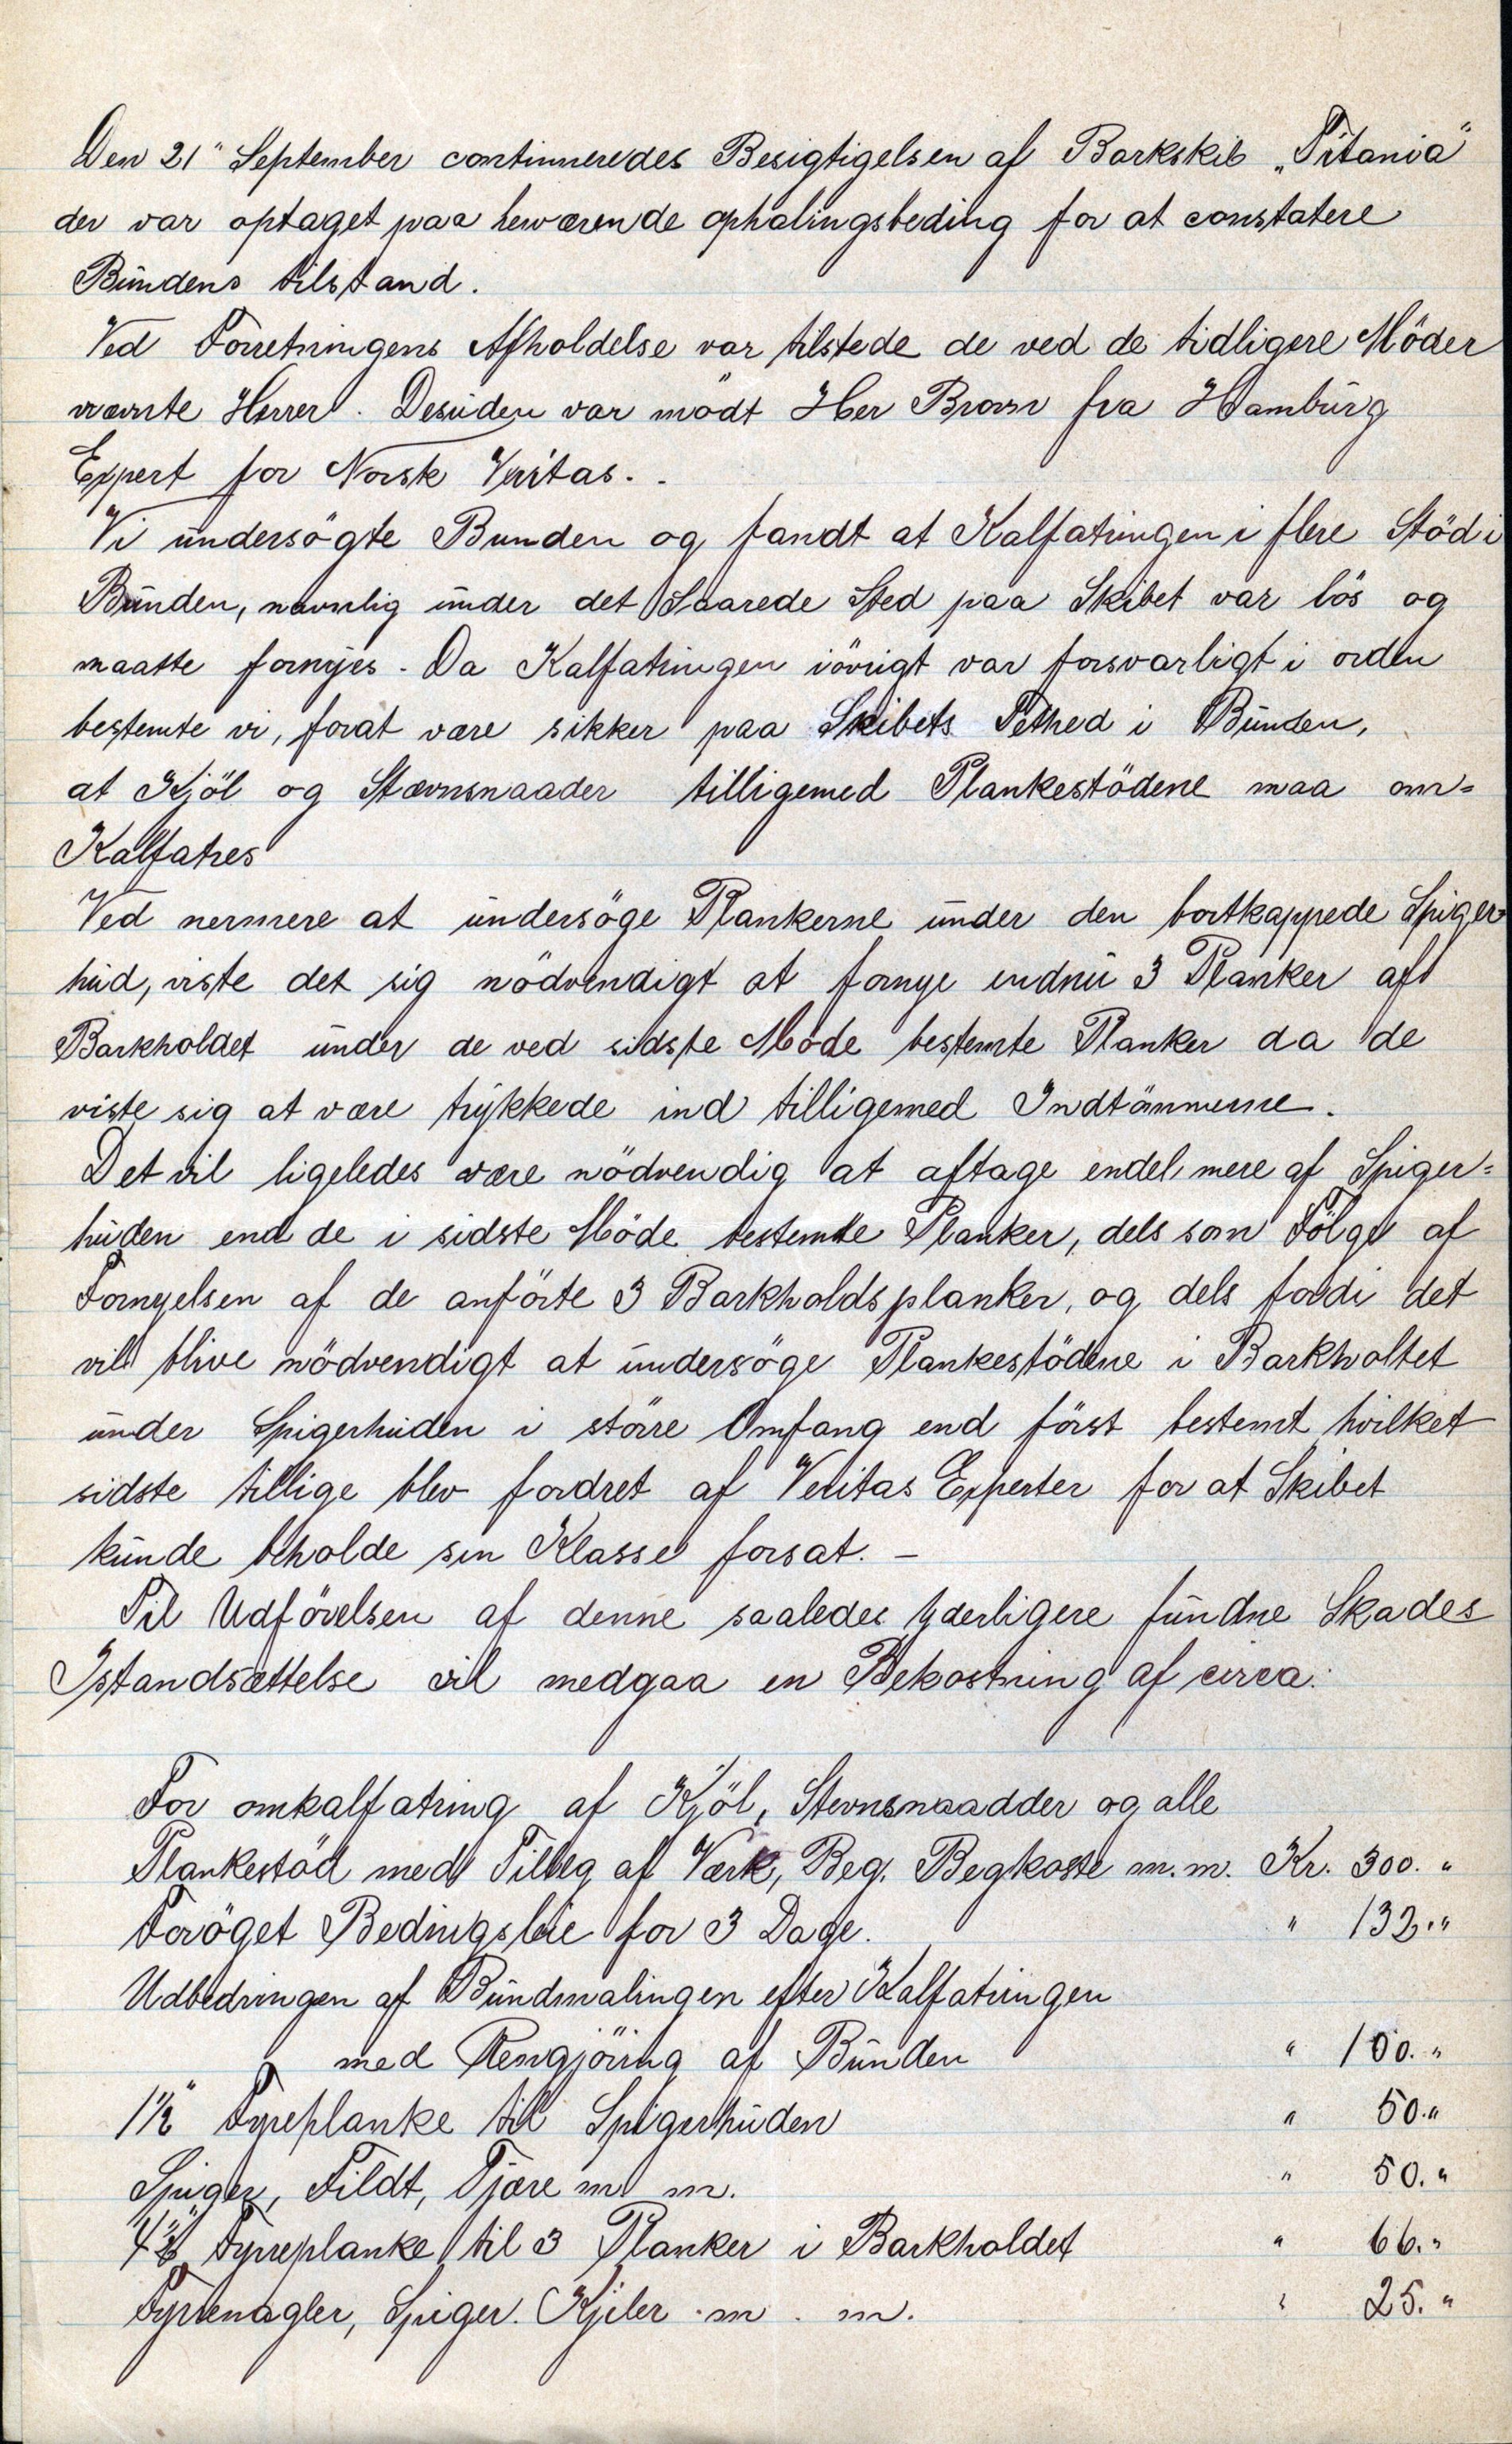 Den 21" September continueredes Besigtigelsen af Barkskib „Titania"
der var optaget paa herværende ophalingsbeding for at constatere
Bundens tilstand.
Ved Forretningens Afholdelse var tilstede de ved de tidligere Möder
nævnte Herrer. Desuden var mödt Her Brovn fra Hamburg
Expert for Norsk Veritas. -
Vi undersögte Bunden og fandt at Kalfatringen i flere Stöd i
Bunden, navnlig under det Saarede Sted paa Skibet var lös og
maatte fornyes. Da Kalfatringen iövrigt var forsvarligt i orden
bestemte vi, forat være sikker paa Skibets Tethed i Bunden,
at Kjöl og Stævnsnaader tilligemed Plankestödene maa om=
Kalfatres
Ved nermere at undersöge Plankerne under den bortkappede Spiger
hud, viste det sig nödvendigt at fornye endnu 3 Planker af
Barkholdet under de ved sidste Möde bestemte Planker da de
viste sig at være trykkede ind tilligemed Indtömmerne.
Det vil ligeledes være nödvendig at aftage endel mere af Spiger=
huden end de i sidste Möde bestemte Planker, dels som Fölge af
Fornyelsen af de anförte 3 Barkholdsplanker, og dels fordi det
vil blive nödvendigt at undersöge Plankestödene i Barkholtet
under Spigerhuden i större Omfang end först bestemt, hvilket
sidste tillige blev fordret af Veritas Experter for at Skibet
kunde beholde sin Klasse forsat. -
Til Udförelsen af denne saaledes yderligere fundne Skades
Istandsættelse vil medgaa en Bekostning af circa:
For omkalfatring af Kjöl, Stevnsnaadder og alle
Plankestöd med Tilleg af Værk, Beg. Begkoste m.m. Kr. 300. "
Foröget Bedingsleie for 3 Dage. " 132. "
Udbedringen af Bundmalingen efter Kalfatringen
med Rengjöring af Bunden " 100. "
1½" Fyreplanke til Spigerhuden " 50. "
Spiger, Fildt, Tjære m m. " 50. "
4½" Fyrreplanke til 3 Planker i Barkholdet " 66. "
Fyrrenagler, Spiger. Kjiler m. m. " 25. "